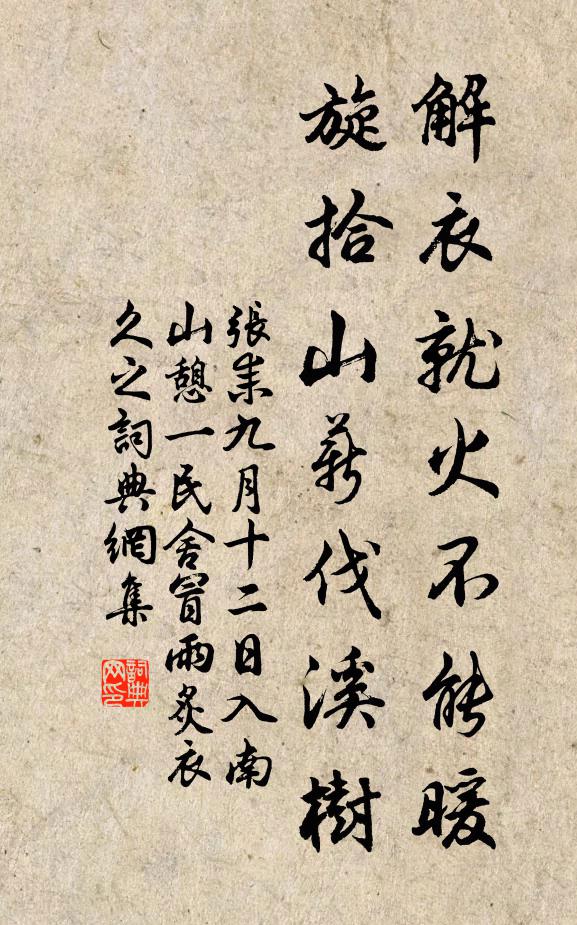 解衣就火不能暖
旋拾山薪伐溪樹
張耒九月十二日入南
山憩一民舍冒雨炙衣
久之詞典網集
詞典
网印